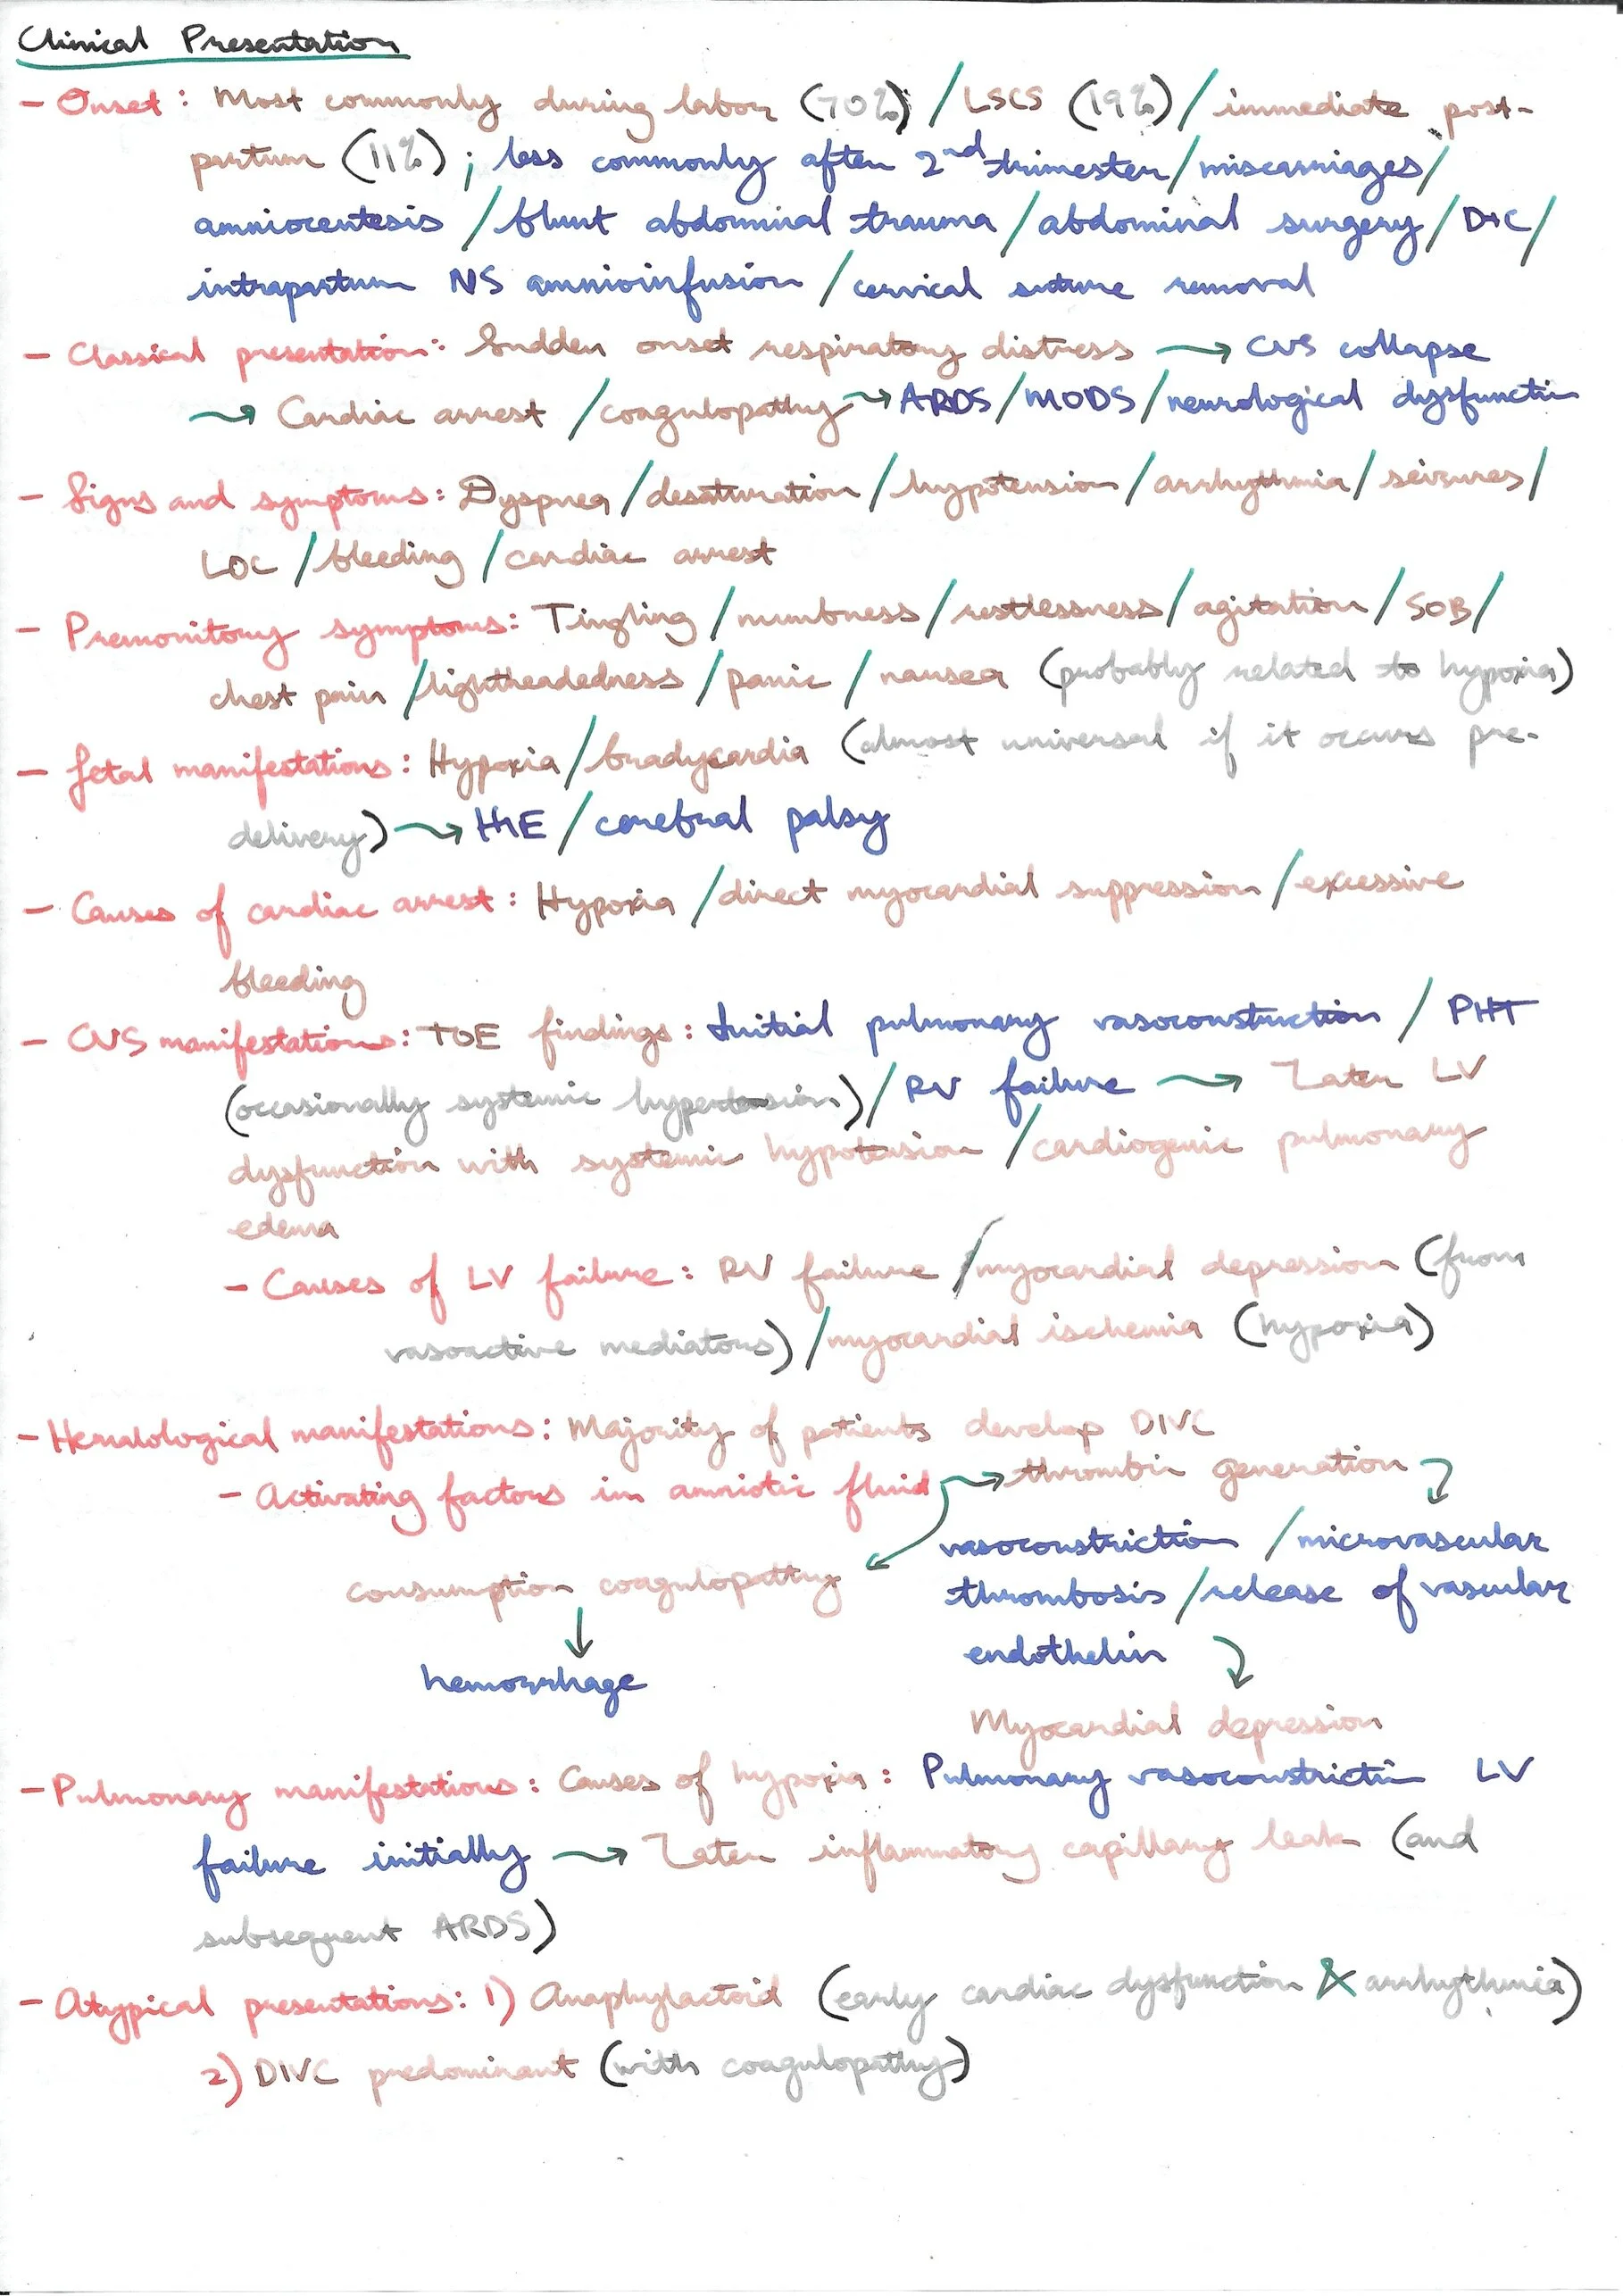 Clinical Presentation
- Onset: Most commonly during labor (70%) / LSCS (19%) / immediate post-
partum (11%) ; less commonly after 2nd trimester / miscarriages /
amniocentesis / blunt abdominal trauma / abdominal surgery / D+C /
intrapartum NS amnioinfusion / cervical suture removal
- Classical presentation: Sudden onset respiratory distress → CVS collapse
→ Cardiac arrest / coagulopathy → ARDS / MODS / neurological dysfunction
- Signs and symptoms: Dyspnea / desaturation / hypotension / arrhythmia / seizures /
LOC / bleeding / cardiac arrest
- Premonitory symptoms: Tingling / numbness / restlessness / agitation / SOB /
chest pain / lightheadedness / panic / nausea (probably related to hypoxia)
- Fetal manifestations: Hypoxia / bradycardia (almost universal if it occurs pre-
delivery) → HIE / cerebral palsy
- Causes of cardiac arrest: Hypoxia / direct myocardial suppression / excessive
bleeding
- CVS manifestations: TOE findings: Initial pulmonary vasoconstruction / PHT
(occasionally systemic hypertension) / RV failure → Later LV
dysfunction with systemic hypotension / cardiogenic pulmonary
edema
- Causes of LV failure: RV failure / myocardial depression (from
vasoactive mediators) / myocardial ischemia (hypoxia)
- Hematological manifestations: Majority of patients develop DIVC
- Activating factors in amniotic fluid → thrombin generation
vasoconstriction / microvascular
consumption coagulopathy
thrombosis / release of vascular
endothelin
hemorrhage
Myocardial depression
- Pulmonary manifestations: Causes of hypoxia: Pulmonary vasoconstriction LV
failure initially → Later inflammatory capillary leak (and
subsequent ARDS)
- Atypical presentations: 1) Anaphylactoid (early cardiac dysfunction & arrhythmia)
2) DIVC predominant (with coagulopathy)